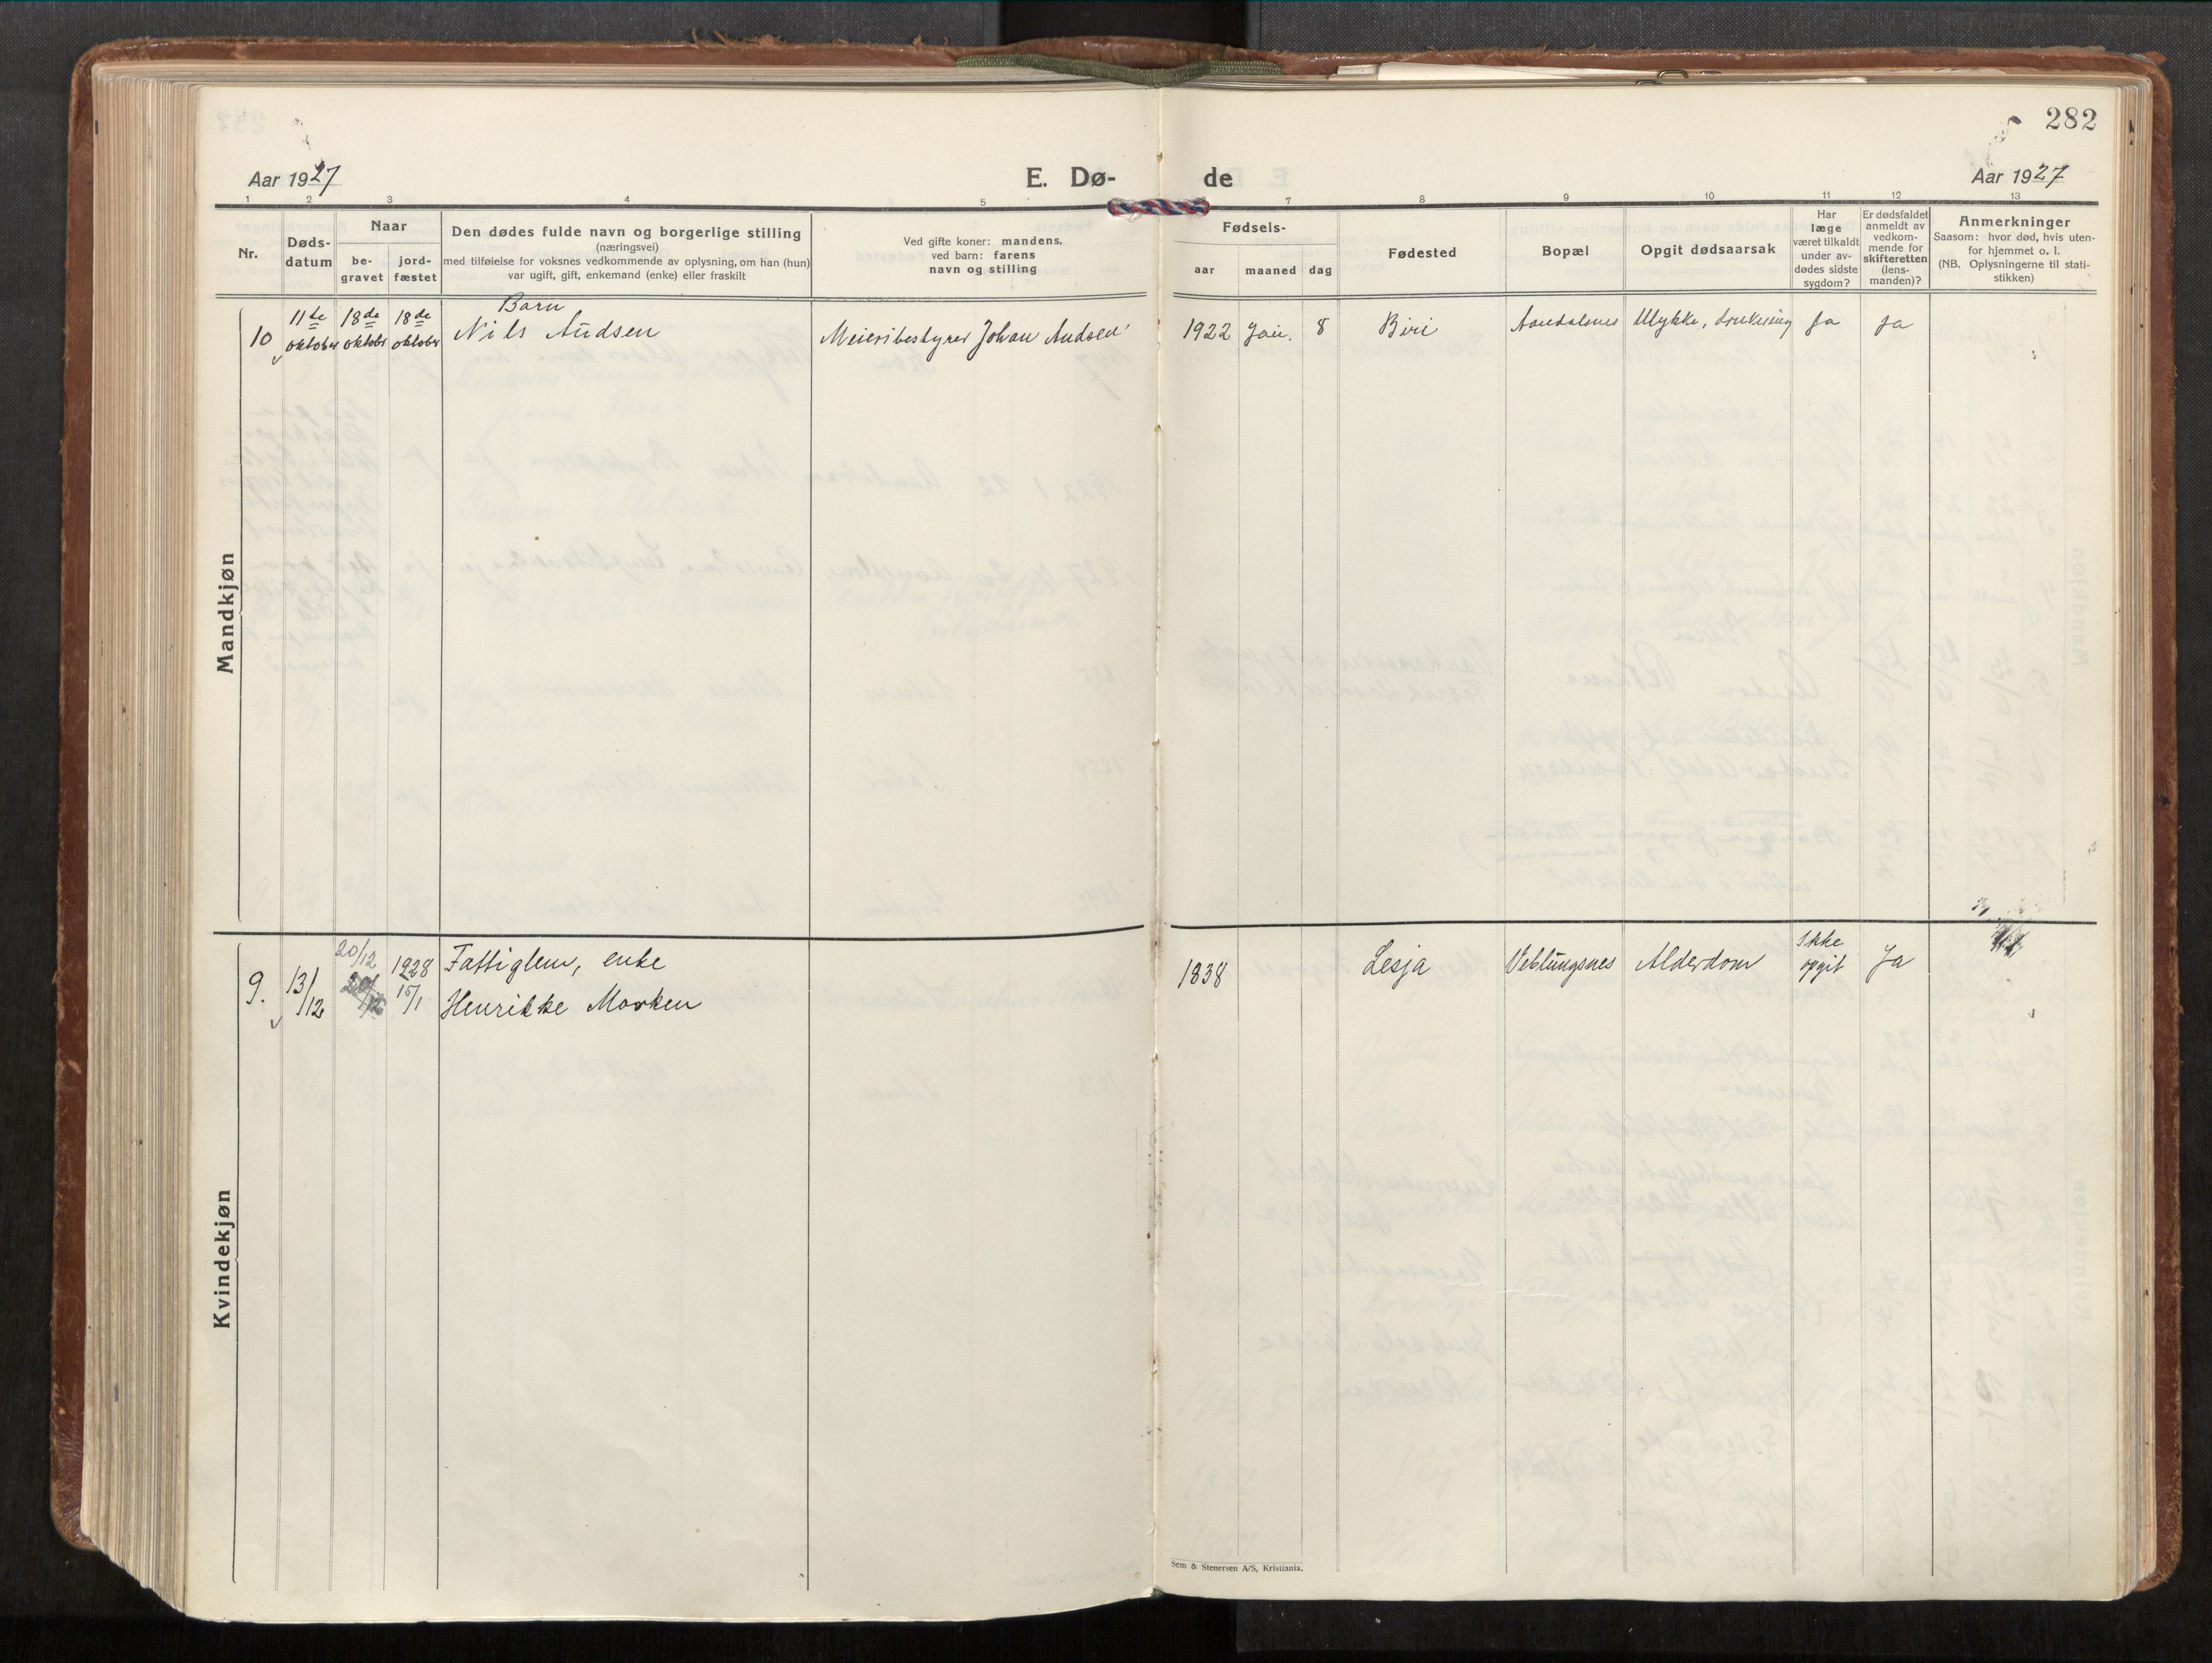 282
Aar 1927
E. Dø-
de
Aar 1927
1 2 3 4 5 7 8 9 10 11 12 13
Nr.
Døds-
datum
Naar
be-
gravet
jord-
fæstet
Den dødes fulde navn og borgerlige stilling
(næringsvei)
med tilføielse for voksnes vedkommende av oplysning, om han (hun)
var ugift, gift, enkemand (enke) eller fraskilt
Ved gifte koner: mandens,
ved barn: farens
navn og stilling
Fødsels-
aar maaned dag
Fødested
Bopæl
Opgit dødsaarsak
Har
læge
været tilkaldt
under av-
dødes sidste
sygdom?
Er dødsfaldet
anmeldt av
vedkom-
mende for
skifteretten
(lens-
manden)?
Anmerkninger
Saasom: hvor død, hvis uten-
for hjemmet o. l.
(NB. Oplysningerne til stati-
stikken)
Mandkjøn
10
11te
oktober
18de
oktobr
18de
oktober
Barn
Nils Audsen
Meieribestyrer Johan Audsen
1922 Jan. 8 Biri Aandalsnes Ulykke, drukning Ja Ja
Kvindekjøn
9.
13/12
20/12
20/12
1928
15/1
Fattiglem, enke
Henrikke Morken
1838 Lesja Veblungsnes Alderdom
Ikke
opgit
Ja
Sem & Stenersen A/S, Kristiania.